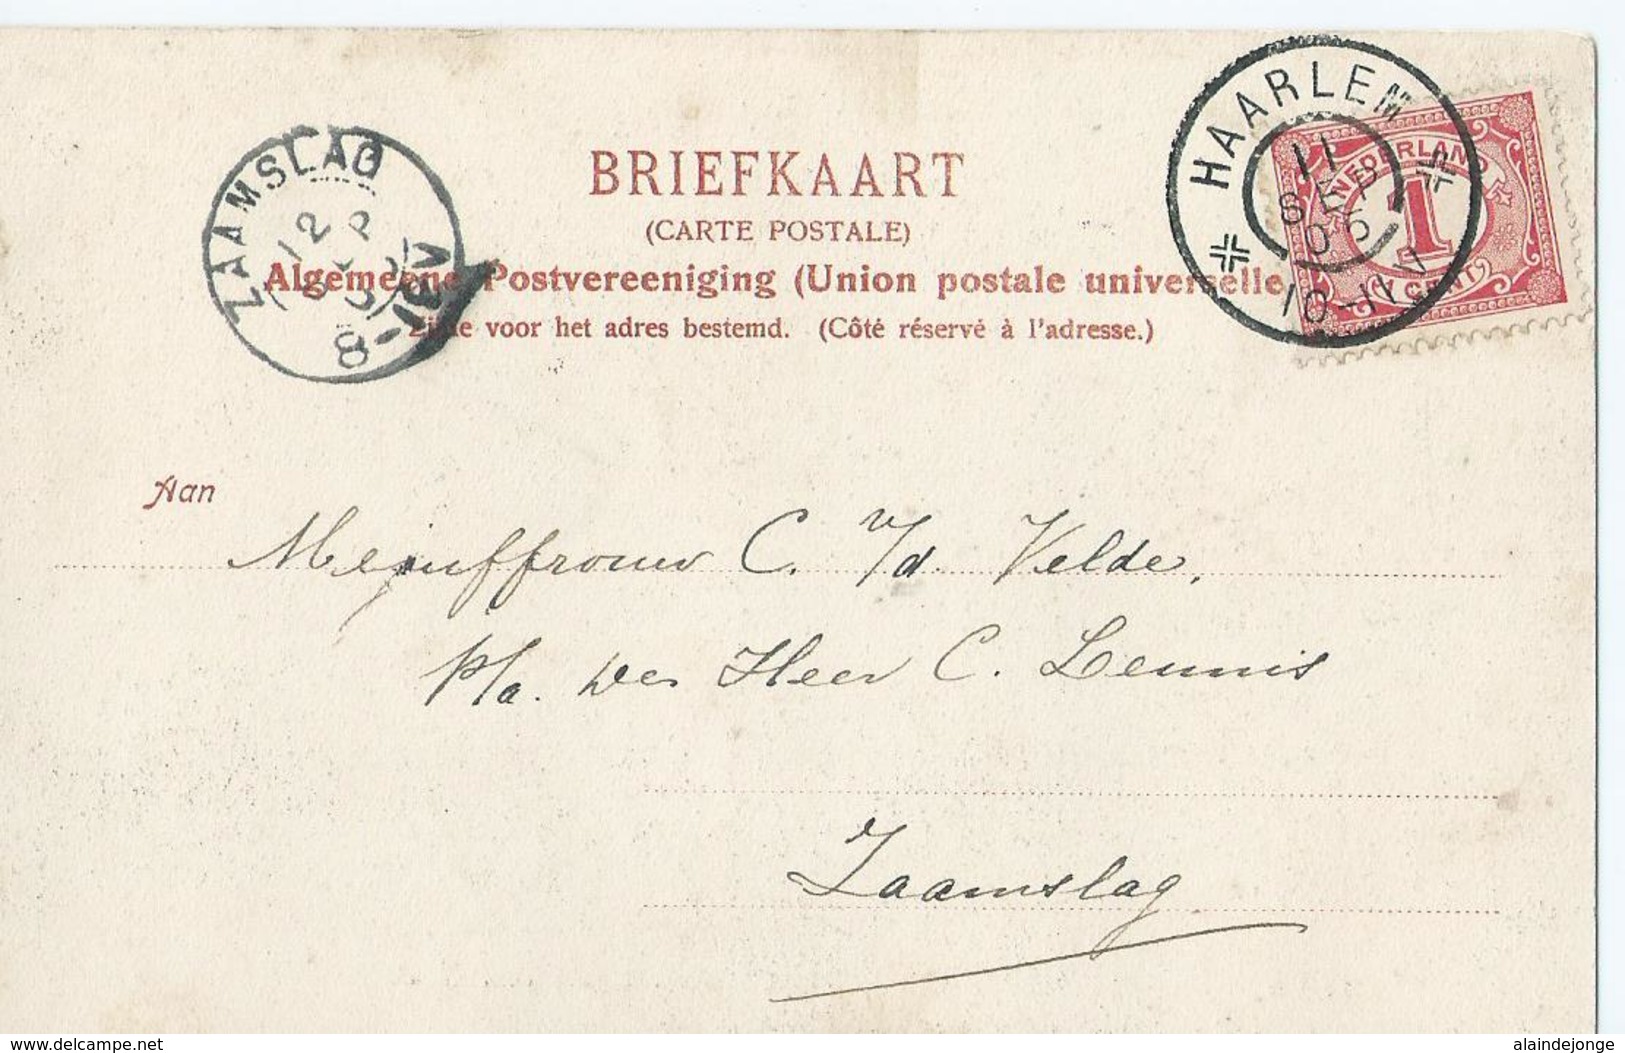 BRIEFKAART
(CARTE POSTALE)
Algemeene Postvereeniging (Union postale universelle)
Zijde voor het adres bestemd. (Côté réservé à l'adresse.)
ZAAMSLAG
12
8-
HAARLEM
11
SEP
05
10-11V
NEDERLAND
1
1 CENT
Aan
Mejuffrouw C. v/d Velde,
p/a. den Heer C. Lennis
Zaamslag
www.delcampe.net
alaindejonge